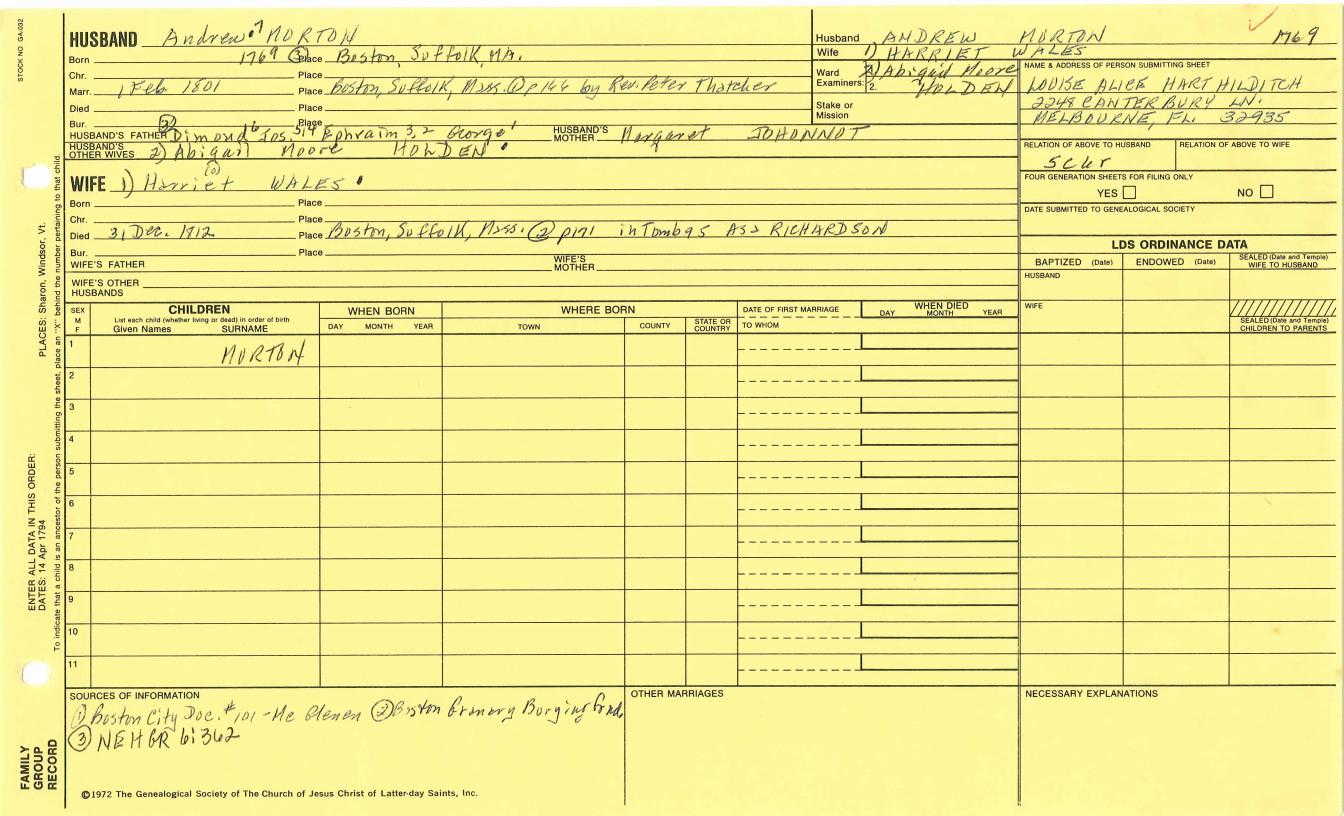 STOCK NO GA-032
HUSBAND Andrew 7 MORTON
Born 1769 (3) Place Boston, Suffolk, MA.
Chr. Place
Marr. 1 Feb 1801 Place Boston, Suffolk, Mass. (1) p166 by Rev. Peter Thatcher
Died Place
Bur. Place
HUSBAND'S FATHER Dimond 6 Jos. 5,4 Ephraim 3,2 George 1 HUSBAND'S MOTHER Margaret JOHONNOT
HUSBAND'S OTHER WIVES 2) Abigail Moore HOLDEN
WIFE 1) Harriet WALES
Born Place
Chr. Place
Died 31 Dec. 1812 Place Boston, Suffolk, Mass. (2) p171 in Tomb 95 Ass RICHARDSON
Bur. Place
WIFE'S FATHER WIFE'S MOTHER
WIFE'S OTHER HUSBANDS
Husband ANDREW MORTON 1769
Wife 1) HARRIET WALES
Ward Examiners: 1. 2. 2) Abigail Moore HOLDEN
Stake or Mission
NAME & ADDRESS OF PERSON SUBMITTING SHEET
LOUISE ALICE HART HILDITCH
2248 CANTERBURY LN.
MELBOURNE, FL. 32935
RELATION OF ABOVE TO HUSBAND RELATION OF ABOVE TO WIFE
FOUR GENERATION SHEETS FOR FILING ONLY
YES NO
DATE SUBMITTED TO GENEALOGICAL SOCIETY
LDS ORDINANCE DATA
BAPTIZED (Date) ENDOWED (Date) SEALED (Date and Temple) WIFE TO HUSBAND
HUSBAND
WIFE
SEALED (Date and Temple) CHILDREN TO PARENTS
SEX M F
CHILDREN
List each child (whether living or dead) in order of birth
Given Names SURNAME
WHEN BORN
DAY MONTH YEAR
WHERE BORN
TOWN COUNTY STATE OR COUNTRY
DATE OF FIRST MARRIAGE
TO WHOM
WHEN DIED
DAY MONTH YEAR
1 MORTON
2
3
4
5
6
7
8
9
10
11
SOURCES OF INFORMATION
(1) Boston City Doc. #101 - (2) Boston Granary
(3) NEHGR 61:362
OTHER MARRIAGES
NECESSARY EXPLANATIONS
©1972 The Genealogical Society of The Church of Jesus Christ of Latter-day Saints, Inc.
PLACES: Sharon, Windsor, Vt.
ENTER ALL DATA IN THIS ORDER:
DATES: 14 Apr 1794
To indicate that a child is an ancestor of the person submitting the sheet, place an "X" behind the number pertaining to that child.
FAMILY GROUP RECORD